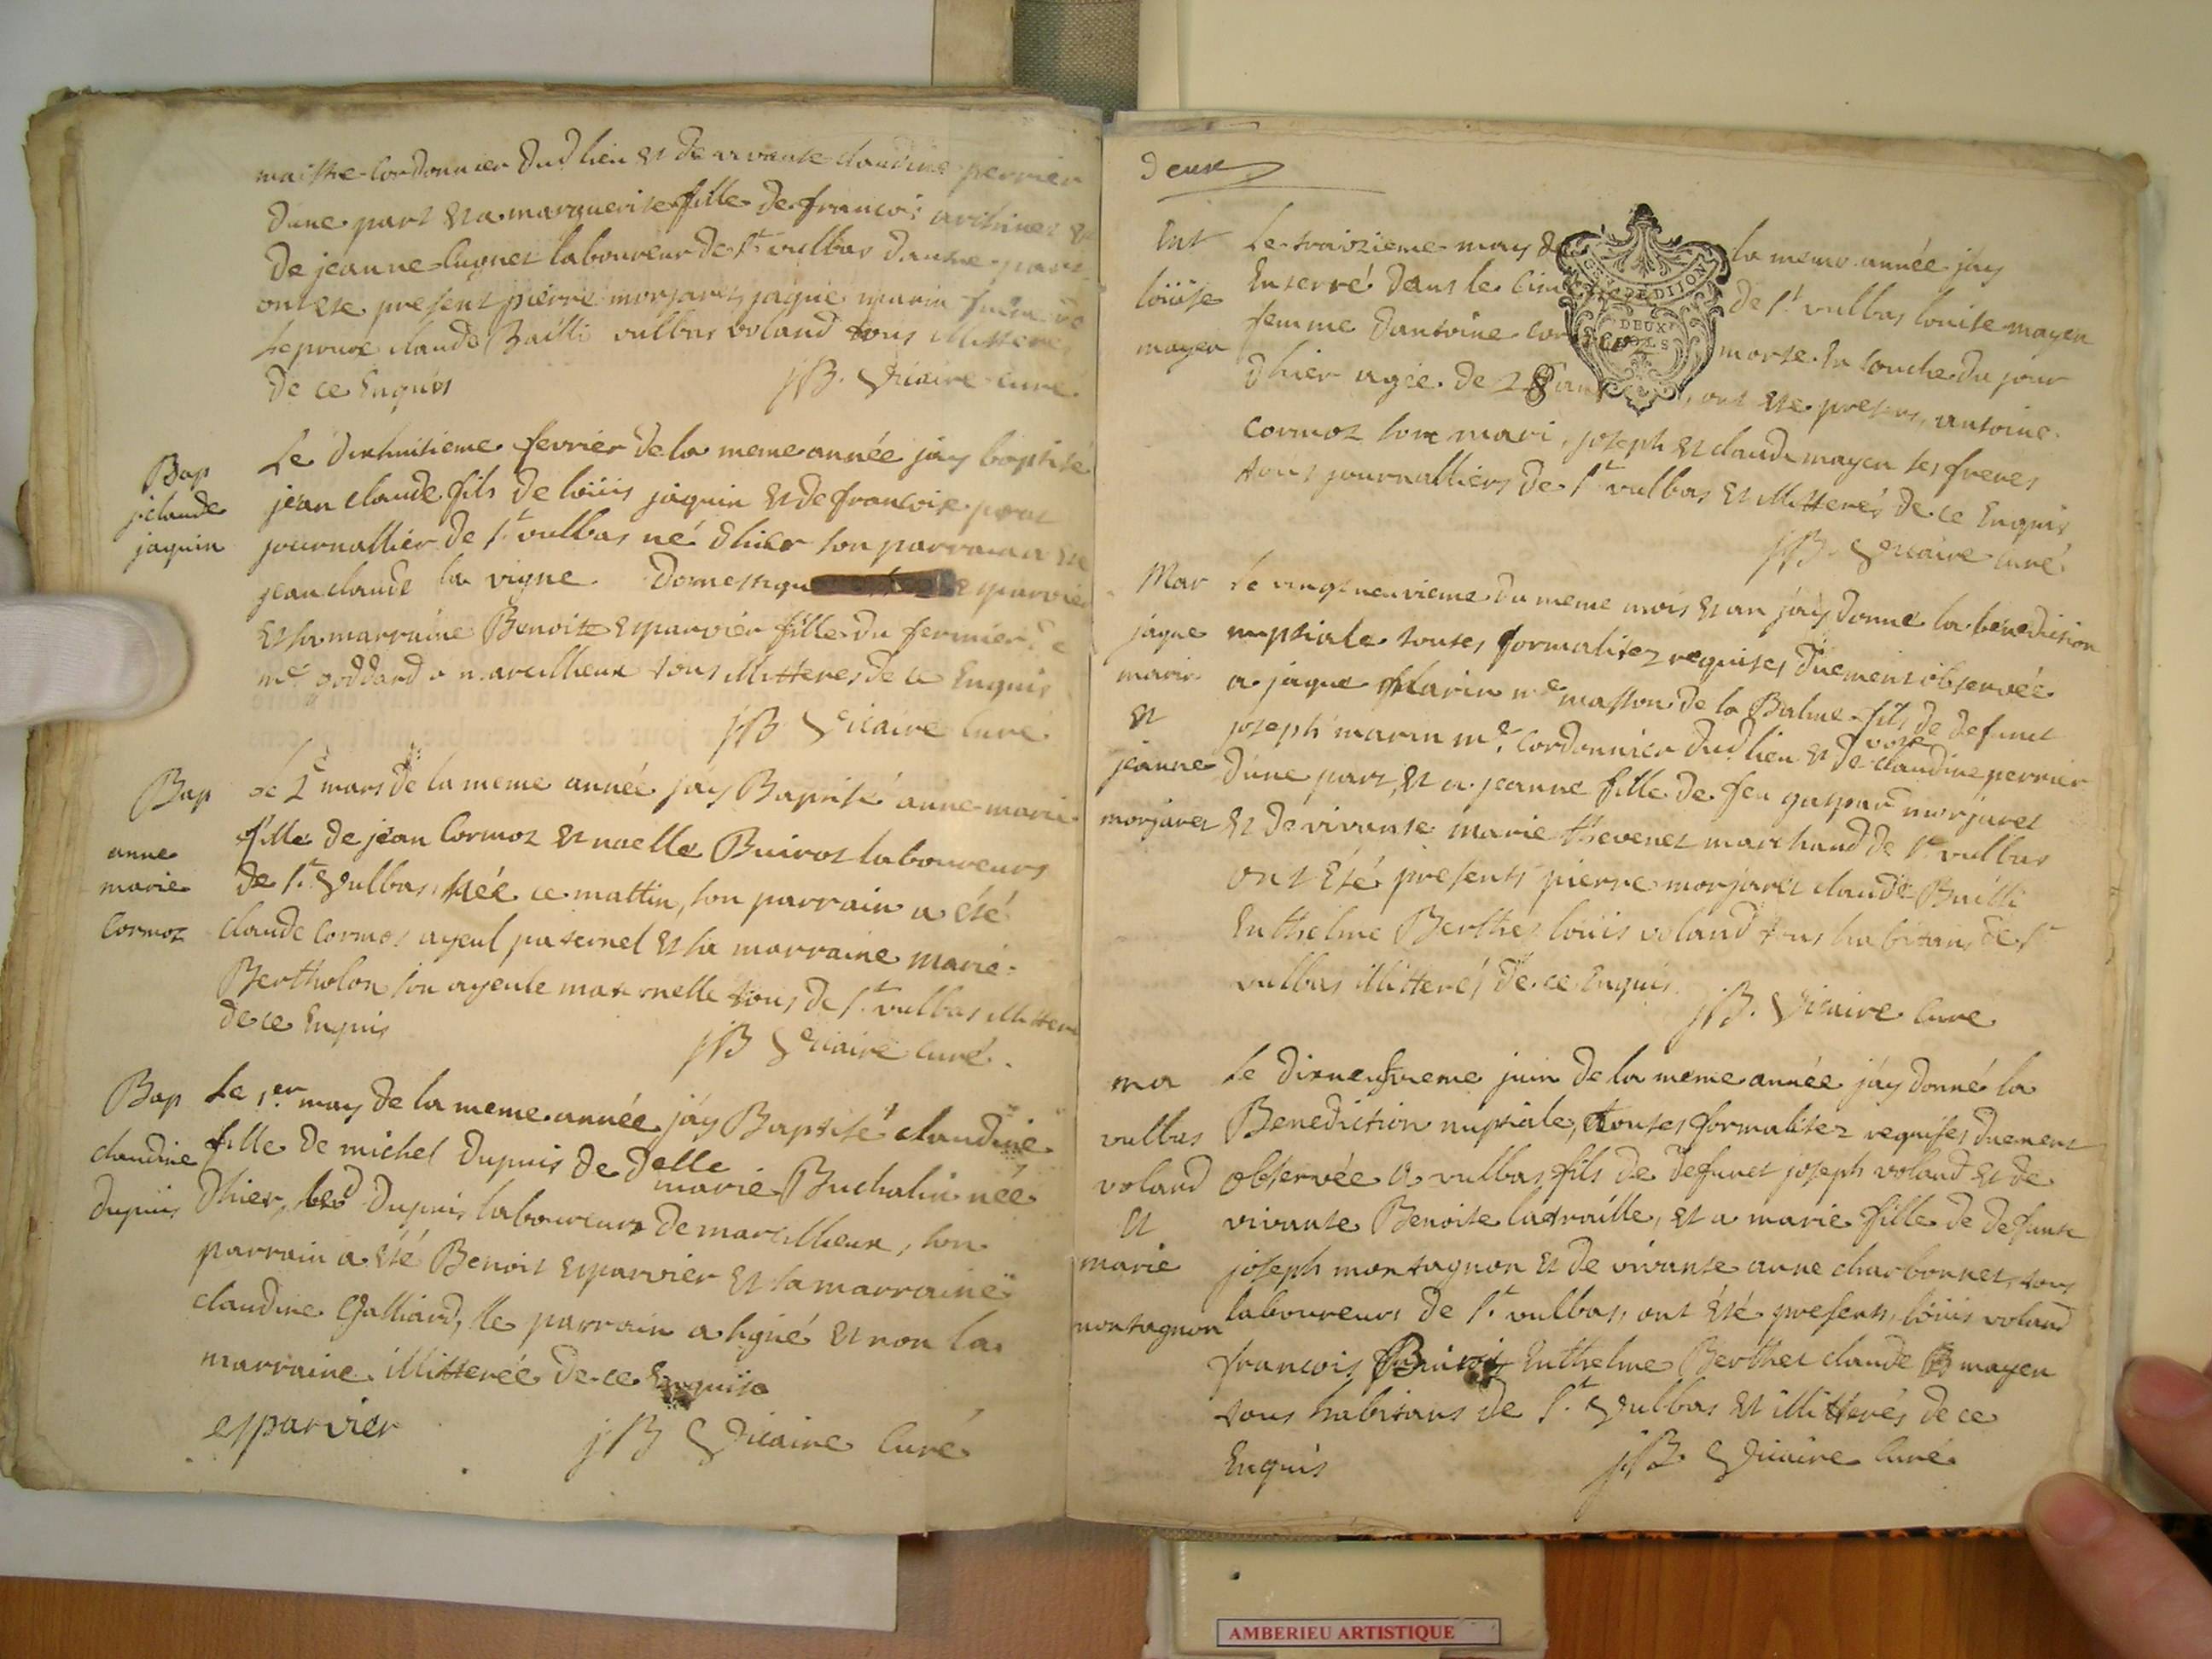 maistre cordonnier dud lieu et de vivante claudine perrier
dune part et a marguerite fille de francois
de jeanne cugnet laboureur de st vulbas dautre part
ont ete present pierre morjaret, jaque marin
claude Bailli vulbas voland tous illitteres
de ce Enquis
jB. Vicaire curé
Bap
j. claude
jaquin
Le dixhuitieme fevrier de la meme année jay baptisé
jean claude fils de loüis jaquin et de francoise
journallier de st vulbas né dhier son parrain a
jean claude la vigne domestique esparvier
et sa marraine Benoite esparvier fille du fermier de
mr goddard a marcillieux tous illitteres de ce Enquis
jB Vicaire curé
Bap
anne
marie
cormoz
Le 2e mars de la meme année jay Baptisé anne marie
fille de jean Cormoz et noelle Buirot laboureurs
de st Vulbas, née ce mattin, son parrain a été
claude Cormoz ayeul paternel et sa marraine marie
Bertholon son ayeule maternelle tous de st vulbas illitteré
de ce Enquis
jB Vicaire curé.
Bap
claudine
dupuis
Le 1er may de la meme année, jáy Baptisé claudine
fille de michel Dupuis de delle marie Buchalin née
dhier, led Dupuis laboureur de marcillieux, son
parrain a été Benoit Esparvier et sa marraine
claudine Galliard, le parrain a signé et non la
marraine illitterée de ce Enquise
esparvier
jB Vicaire Curé
deux
Ent
loüise
mayen
Le traizieme may de la meme année jay
Enterré dans le de st vulbas louise mayen
femme dantoine morte en couche du jour
dhier agée de 28 ans, ont ete presens, antoine
cormoz son mari, joseph et claude mayen ses freres
tous journalliers de st vulbas et illitterés de ce Enquis
jB. Vicaire curé
GEN. DE DIJON
DEUX
SOLS
Mar
jaque
marin
et
jeanne
morjaret
Le vingt neuvieme du meme mois et an jáy donné la benediction
nuptiale toutes formalitez requises düement observée
a jaque Marin me masson de la Balme fils de defunct
joseph marin me. cordonnier dud lieu et de vivte claudine perrier
dúne part, et a jeanne fille de feu gaspard morjaret
et de vivante marie thevenet marchand de st vulbas
ont Été presents pierre morjaret claude Bailli
Enthelme Berthet loüis voland tous habitans de st
vulbas illitterés de ce Enquis
jB. Vicaire Curé
ma
vulbas
voland
et
marie
montagnon
Le dixneufvieme juin de la meme année jáy donné la
Benediction nuptiale, toutes formalitez requises duement
observée a vulbas fils de defunct joseph voland et de
vivante Benoite latraille, et a marie fille de defunt
joseph montagnon et de vivante anne charbonnet, tous
laboureurs de st vulbas, ont été presents, loüis voland
francois Enthelme Berthet claude mayen
tous habitans de st Vulbas et illitterés de ce
Enquis
jB. Vicaire Curé
AMBERIEU ARTISTIQUE